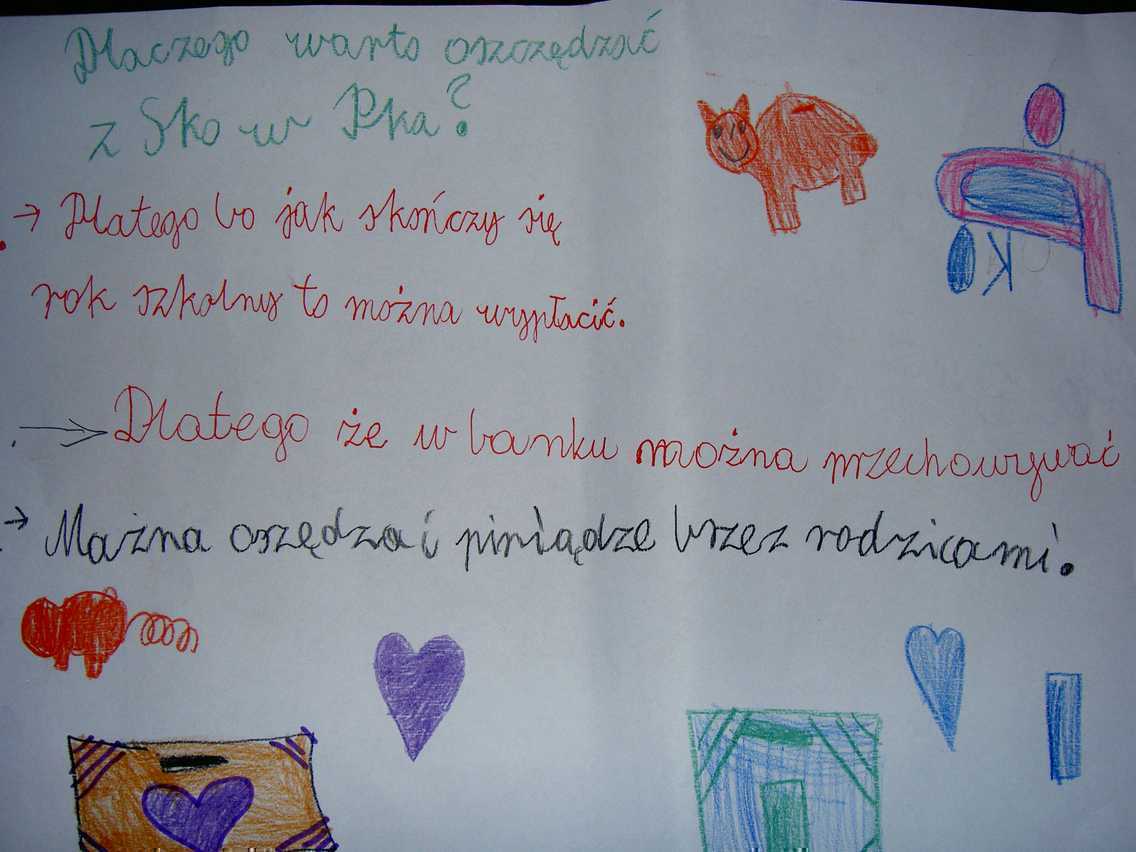 Dlaczego warto oszczędzać
z Sko w Pka?
→ Dlatego bo jak skończy się
rok szkolny to można wypłacić.
→ Dlatego że w banku można przechowywać
→ Mażna oszędzać piniądze brzez rodzicami.